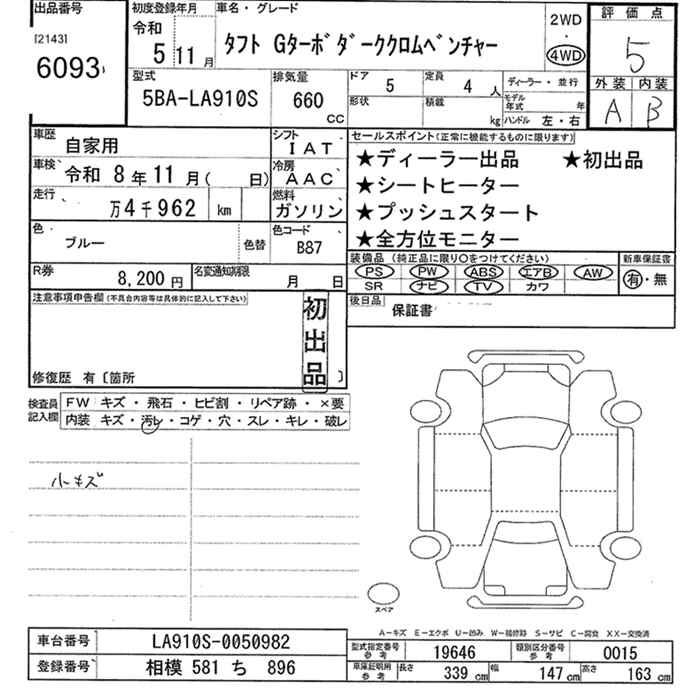 出品番号
[2143]
6093
初度登録年月
令和
5 11月
車名・グレード
タフト Gターボダーククロムベンチャー
2WD
・
4WD
評価点
5
外装 内装
A B
型式
5BA-LA910S
排気量
660
CC
ドア 5
定員 4 人
形状
積載 kg
ディーラー・並行
モデル年式 年
ハンドル 左・右
車歴
自家用
シフト
IAT
車検
令和 8年11月( 日)
冷房
AAC
走行
万4千962 km
燃料
ガソリン
色
ブルー
色替
色コード
B87
R券
8,200円
名変通知期限
月 日
セールスポイント(正常に機能するものに限ります)
★ディーラー出品 ★初出品
★シートヒーター
★プッシュスタート
★全方位モニター
装備品(純正品に限り○をつけてください)
PS PW ABS エアB AW
SR ナビ TV カワ
新車保証書
有・無
後日品
保証書
注意事項申告欄(不具合内容等は具体的に記入して下さい)
初出品
修復歴 有〔箇所 〕
検査員記入欄
FW キズ・飛石・ヒビ割・リペア跡・×要
内装 キズ・汚レ・コゲ・穴・スレ・キレ・破レ
小キズ
スペア
A-キズ E-エクボ U-凹み W-補修跡 S-サビ C-腐食 XX-交換済
車台番号
LA910S-0050982
登録番号
相模 581 ち 896
型式指定番号
参考
19646
類別区分番号
参考
0015
車庫証明用
参考
長さ 339 cm
幅 147 cm
高さ 163 cm